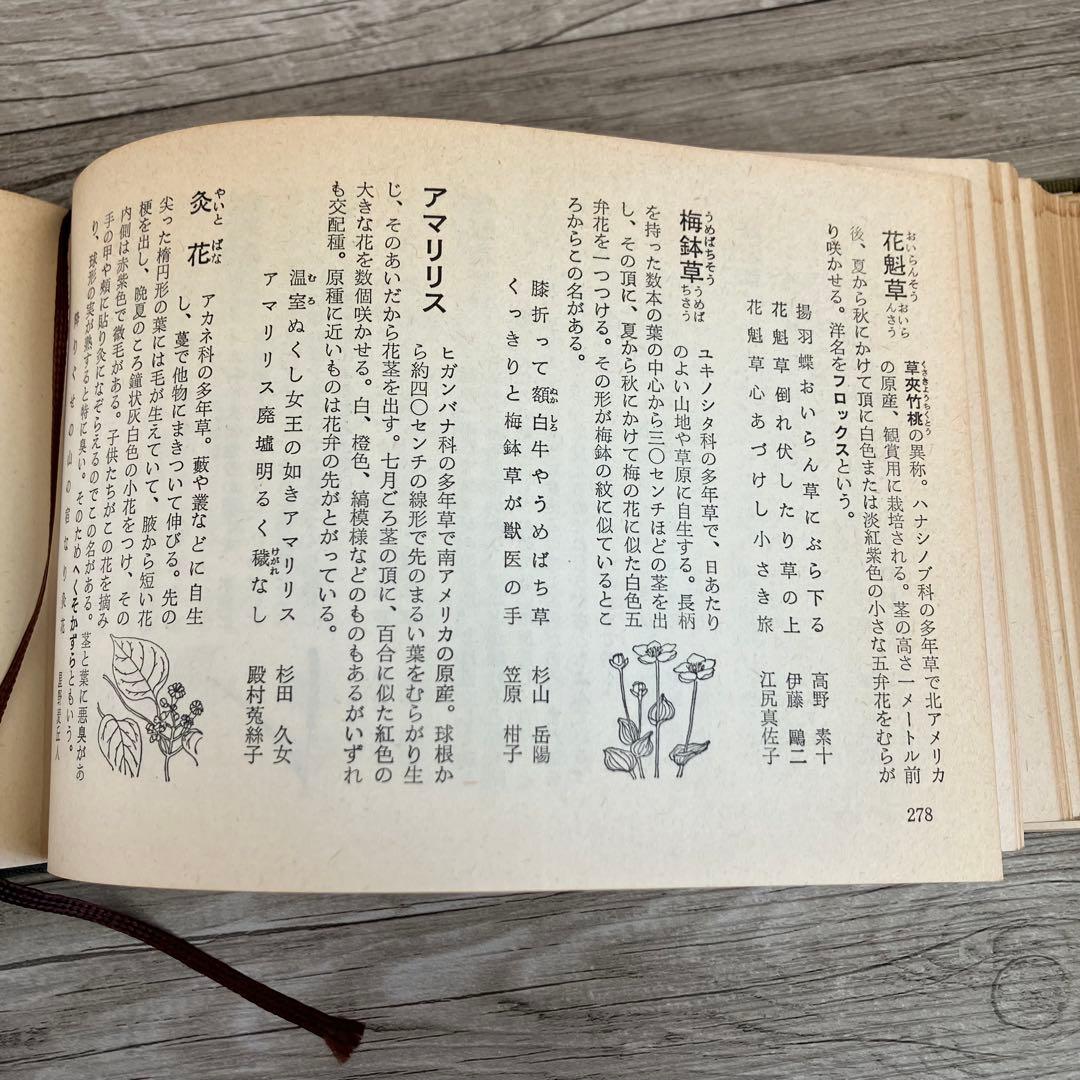 花魁草 おいらんそう おいらんさう
草夾竹桃の異称。ハナシノブ科の多年草で北アメリカ
の原産、観賞用に栽培される。茎の高さ一メートル前
後、夏から秋にかけて頂に白色または淡紅紫色の小さな五弁花をむらが
り咲かせる。洋名をフロックスという。
揚羽蝶おいらん草にぶら下る 高野素十
花魁草倒れ伏したり草の上 伊藤鷗二
花魁草心あづけし小さき旅 江尻真佐子
梅鉢草 うめばちそう うめばちさう
ユキノシタ科の多年草で、日あたり
のよい山地や草原に自生する。長柄
を持った数本の葉の中心から三〇センチほどの茎を出
し、その頂に、夏から秋にかけて梅の花に似た白色五
弁花を一つつける。その形が梅鉢の紋に似ているとこ
ろからこの名がある。
膝折って額白牛やうめばち草 杉山岳陽
くっきりと梅鉢草が獣医の手 笠原柑子
アマリリス
ヒガンバナ科の多年草で南アメリカの原産。球根か
ら約四〇センチの線形で先のまるい葉をむらがり生
じ、そのあいだから花茎を出す。七月ごろ茎の頂に、百合に似た紅色の
大きな花を数個咲かせる。白、橙色、縞模様などのものもあるがいずれ
も交配種。原種に近いものは花弁の先がとがっている。
温室ぬくし女王の如きアマリリス 杉田久女
アマリリス廃墟明るく穢なし 殿村菟絲子
灸花 やいとばな
アカネ科の多年草。藪や叢などに自生
し、蔓で他物にまきついて伸びる。先の
尖った楕円形の葉には毛が生えていて、腋から短い花
梗を出し、晩夏のころ鐘状灰白色の小花をつけ、その
内側は赤紫色で微毛がある。子供たちがこの花を摘み
手の甲や頰に貼り灸になぞらえるのでこの名がある。茎と葉に悪臭があ
り、球形の実が熟すると特に臭い。そのためへくそかずらともいう。
278